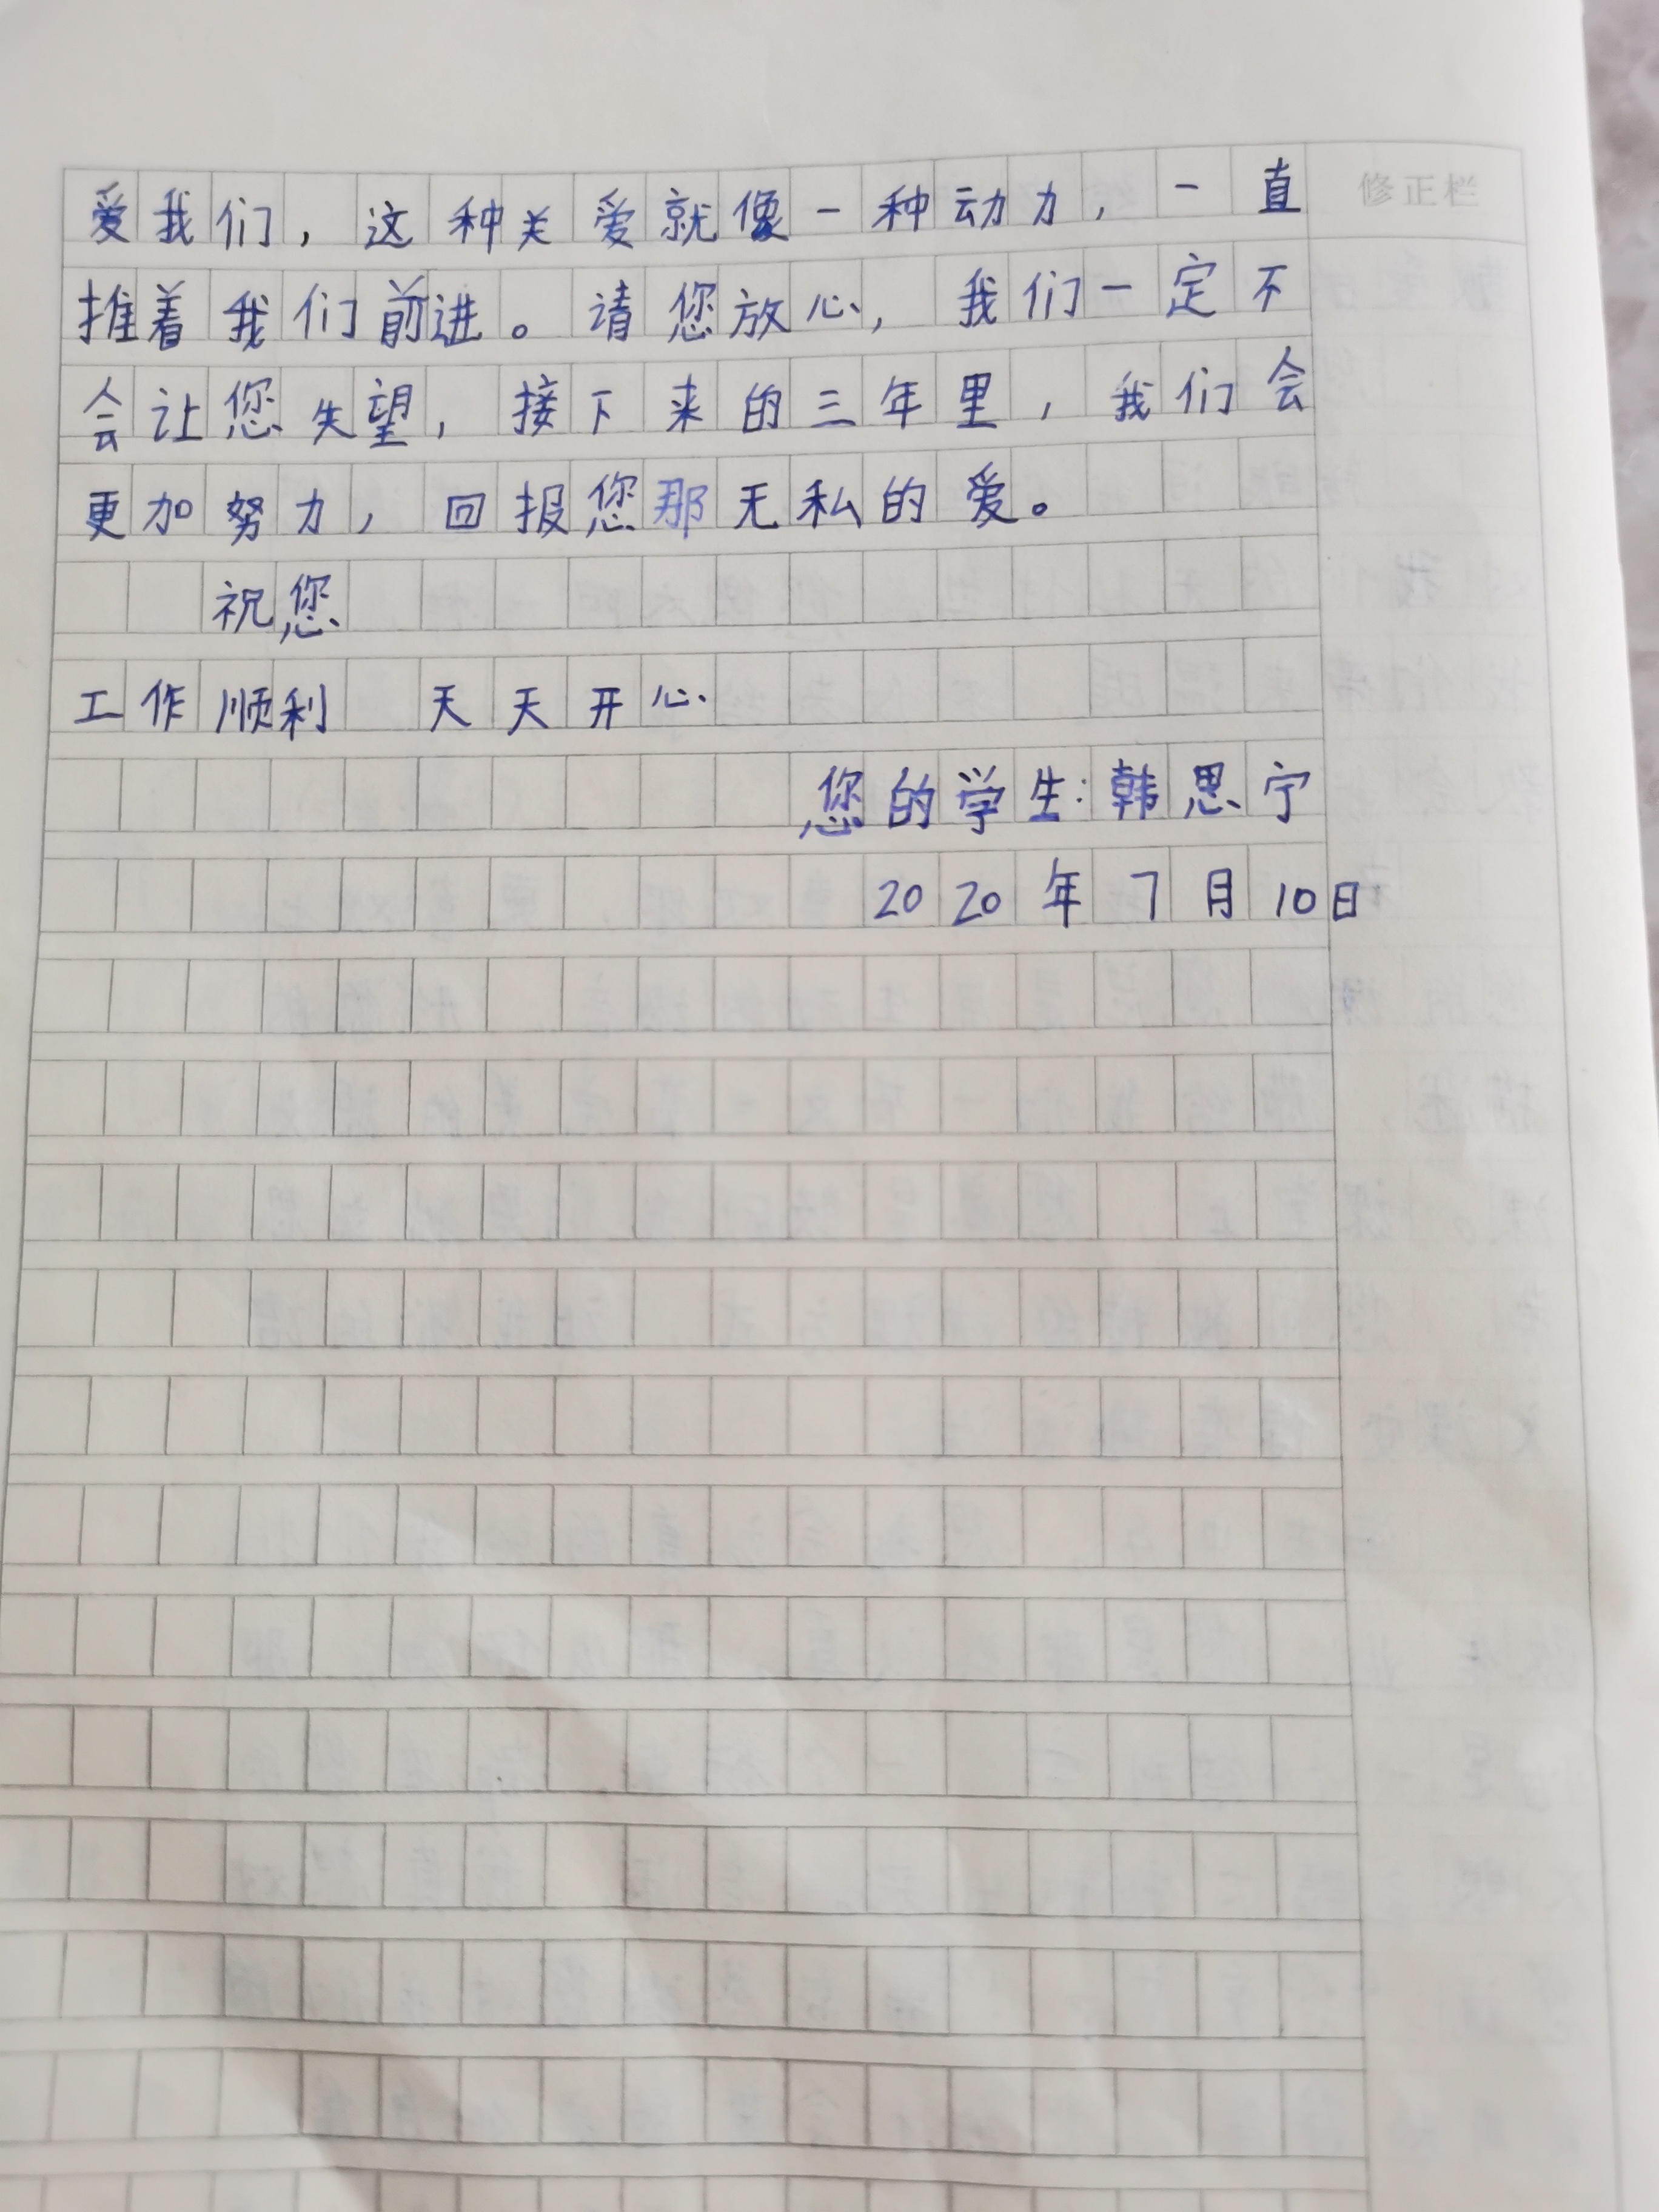 修正栏
爱我们，这种关爱就像一种动力，一直
推着我们前进。请您放心，我们一定不
会让您失望，接下来的三年里，我们会
更加努力，回报您那无私的爱。
祝您
工作顺利 天天开心
您的学生：韩思宁
2020年7月10日